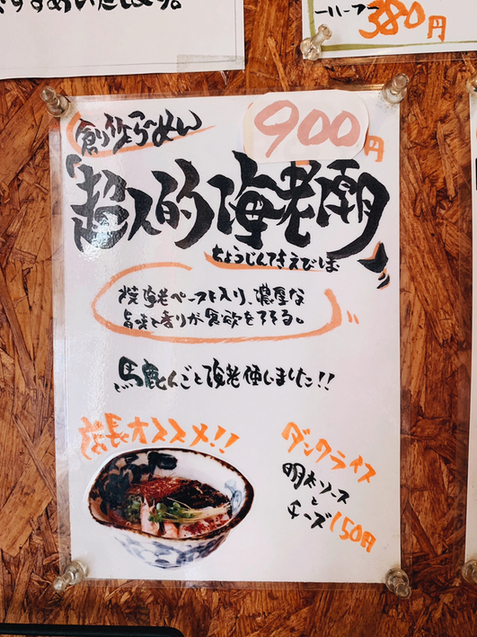 ーハーフー 380円
創作らぁめん
900円
「超人的海老潮」
ちょうじんてきえびしお
焼海老ペースト入り、濃厚な
旨味と香りが食欲をそそる。
馬鹿んごと海老使しました!!
オススメ!!
ダンクライス
明太ソース
と
チーズ150円